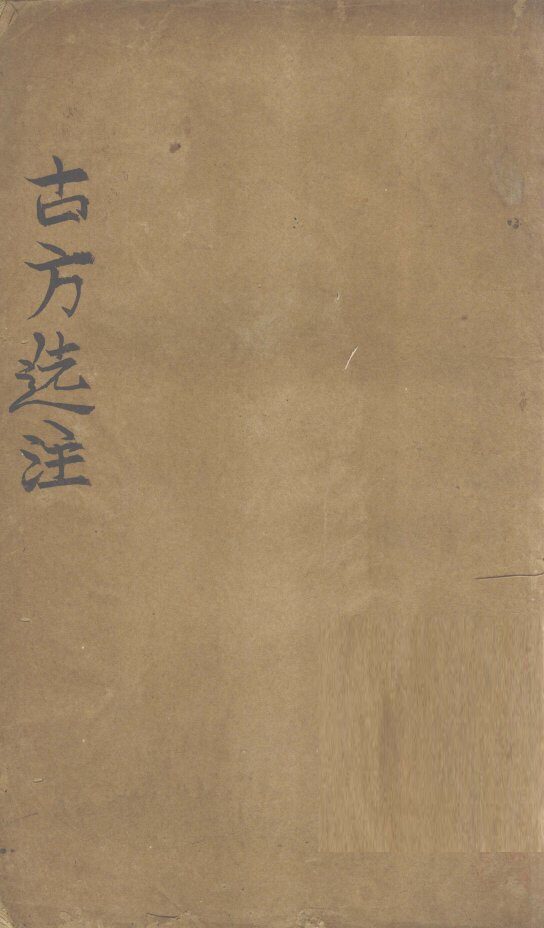 古方选注